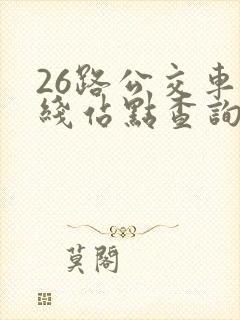 26路公交車
綫佔點查詢
莫閣